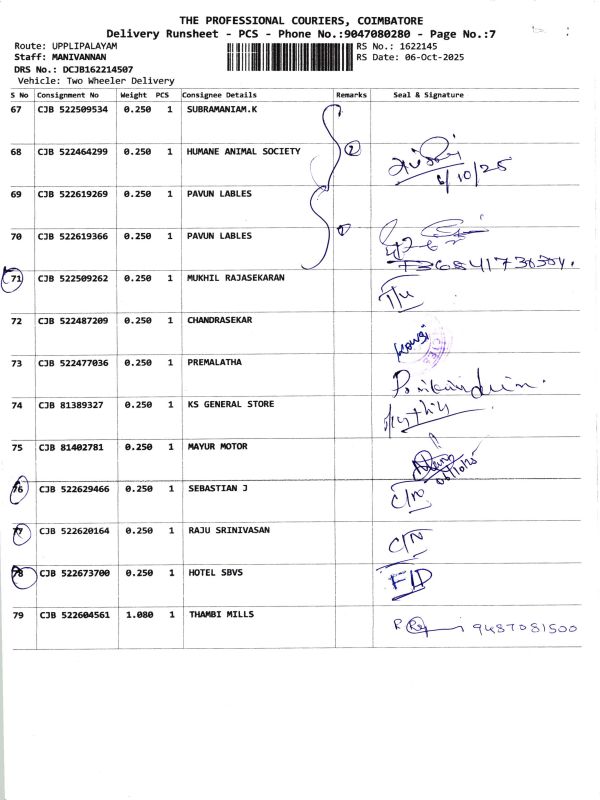 THE PROFESSIONAL COURIERS, COIMBATORE
Delivery Runsheet - PCS - Phone No.:9047080280 - Page No.:7
Route: UPPLIPALAYAM RS No.: 1622145
Staff: MANIVANNAN RS Date: 06-Oct-2025
DRS No.: DCJB162214507
Vehicle: Two Wheeler Delivery
S No Consignment No Weight PCS Consignee Details Remarks Seal & Signature
67 CJB 522509534 0.250 1 SUBRAMANIAM.K
68 CJB 522464299 0.250 1 HUMANE ANIMAL SOCIETY 2
6/10/25
69 CJB 522619269 0.250 1 PAVUN LABLES
70 CJB 522619366 0.250 1 PAVUN LABLES
71 CJB 522509262 0.250 1 MUKHIL RAJASEKARAN
72 CJB 522487209 0.250 1 CHANDRASEKAR
73 CJB 522477036 0.250 1 PREMALATHA
74 CJB 81389327 0.250 1 KS GENERAL STORE
75 CJB 81402781 0.250 1 MAYUR MOTOR
06/10/25
76 CJB 522629466 0.250 1 SEBASTIAN J C/N
77 CJB 522620164 0.250 1 RAJU SRINIVASAN C/N
78 CJB 522673700 0.250 1 HOTEL SBVS F/D
79 CJB 522604561 1.080 1 THAMBI MILLS 9487081500